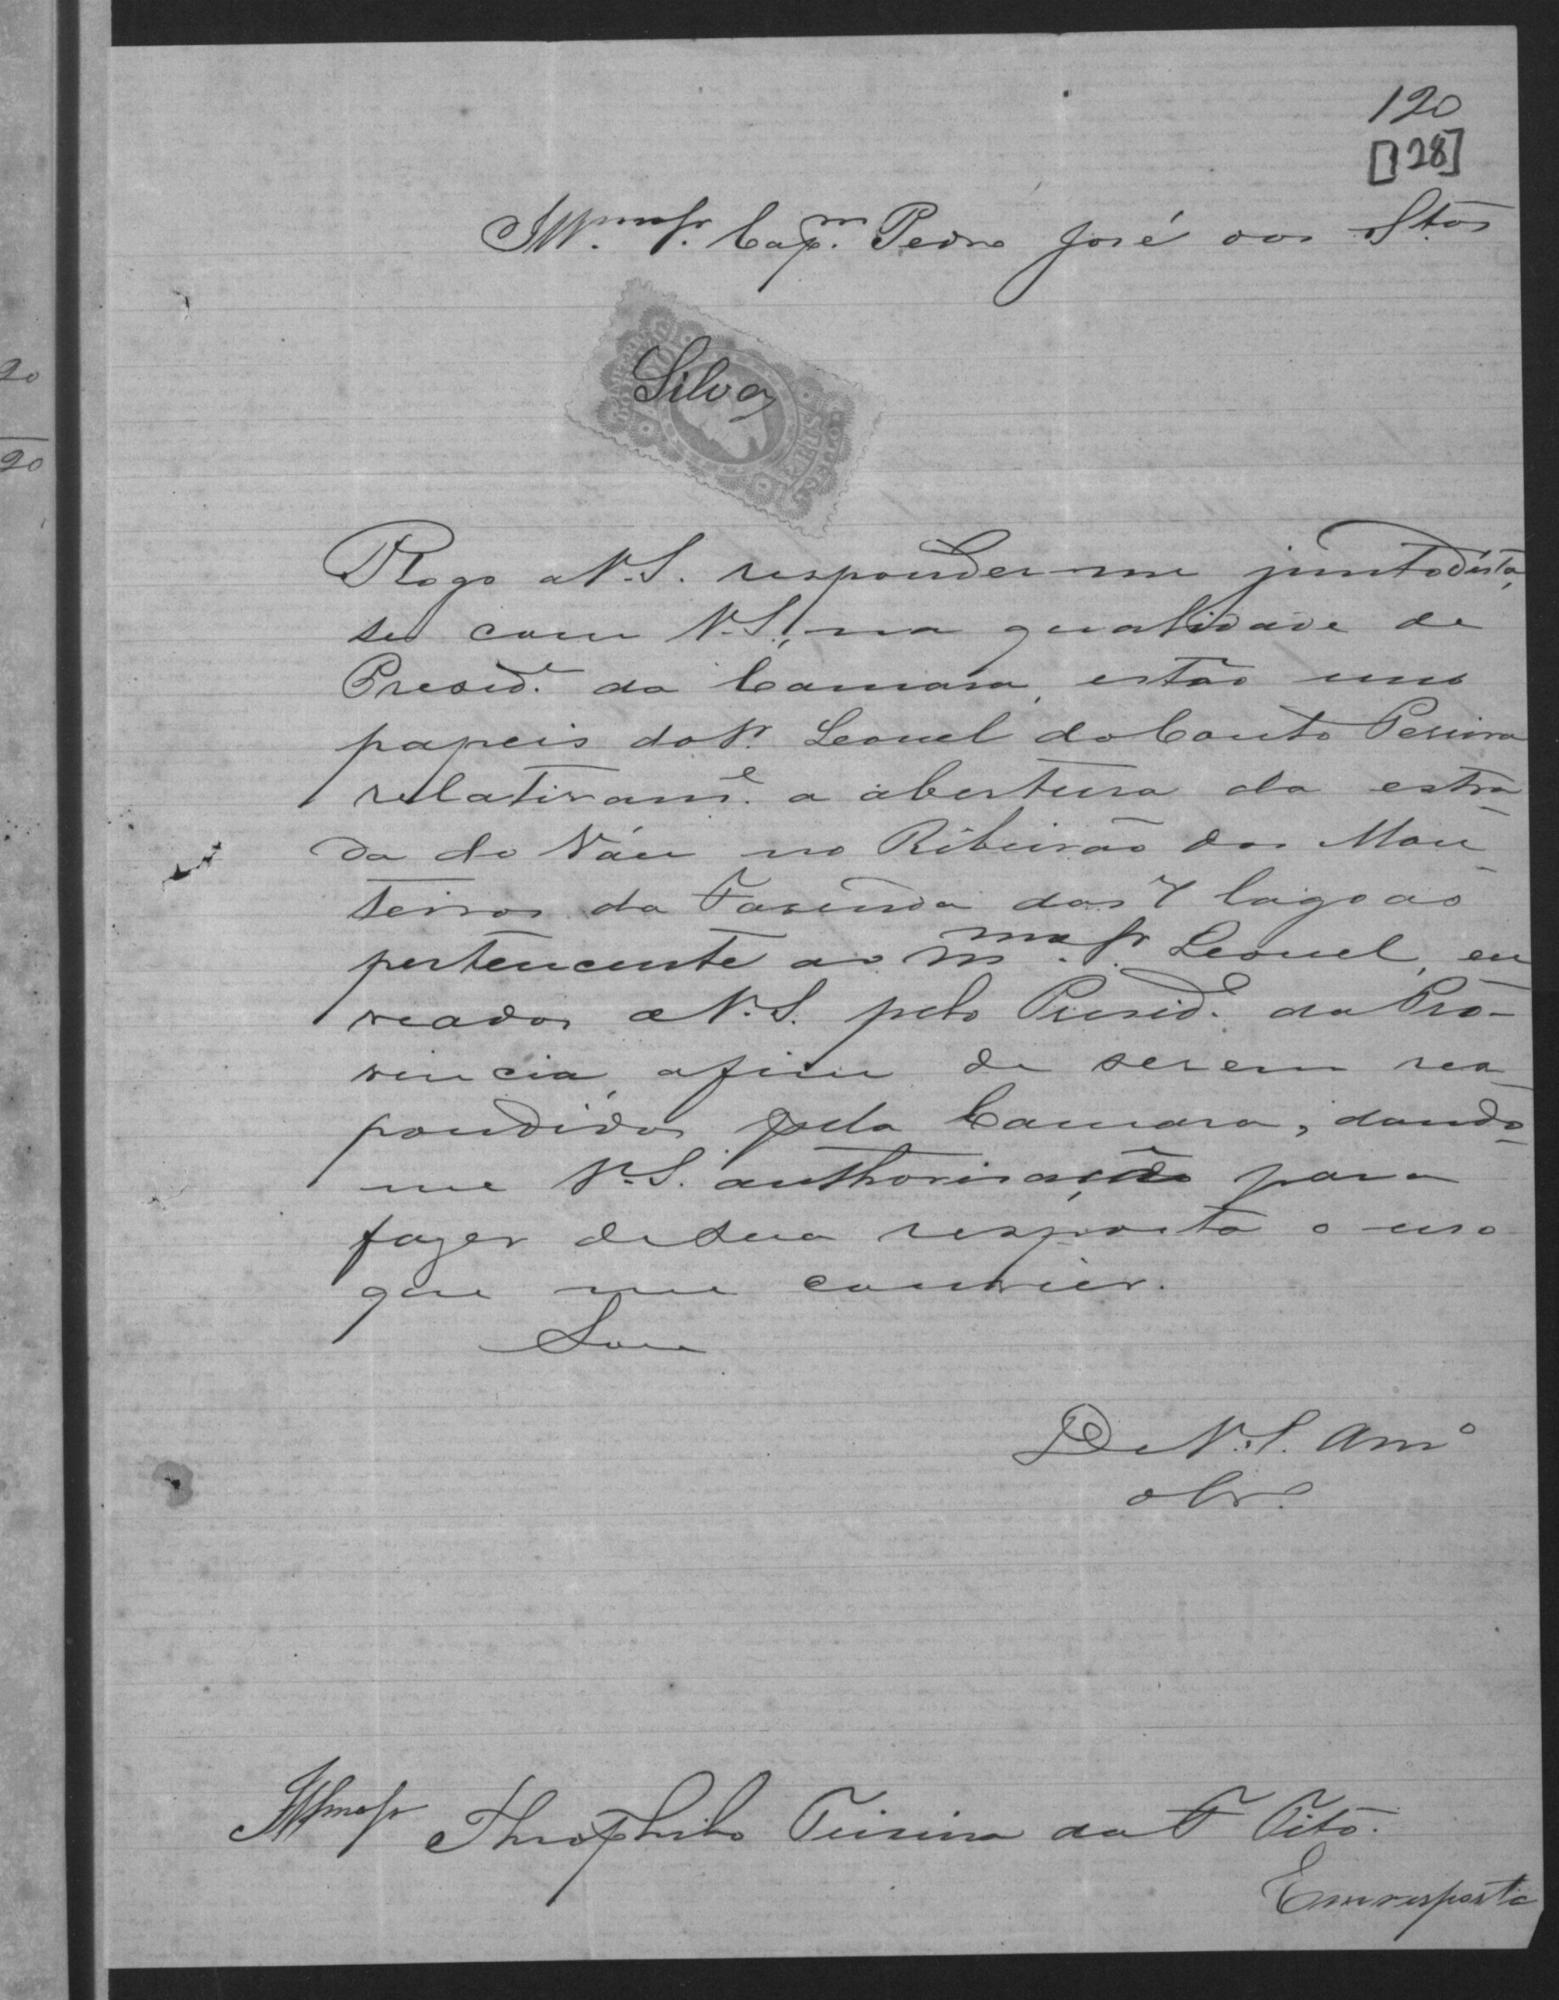 120
[128]
Illmo Sr. Capm. Pedro José dos Stos
Silva
Rogo a V.S. responder-me junto désta,
se com V.S., na qualidade de
Preside. da Camara, estão uns
papeis do Sr. Leonel do Couto Pereira
relativamte. a abertura da estra-
da do Váu no Ribeirão dos Mon-
teiros da Fasenda das 7 lagoas
pertencente ao mmo Sr. Leonel, en
viados a V.S. pelo Preside. da Pro-
vincia, afim de serem res-
pondidos pela Camara, dando-
me V.S. authorisação para
fazer de sua resposta o uso
que me convier.
Sou
De V.S. Amo
obr.
Illmo Sr Theophilo Teixeira da F Tito.
Em resposta
20
20